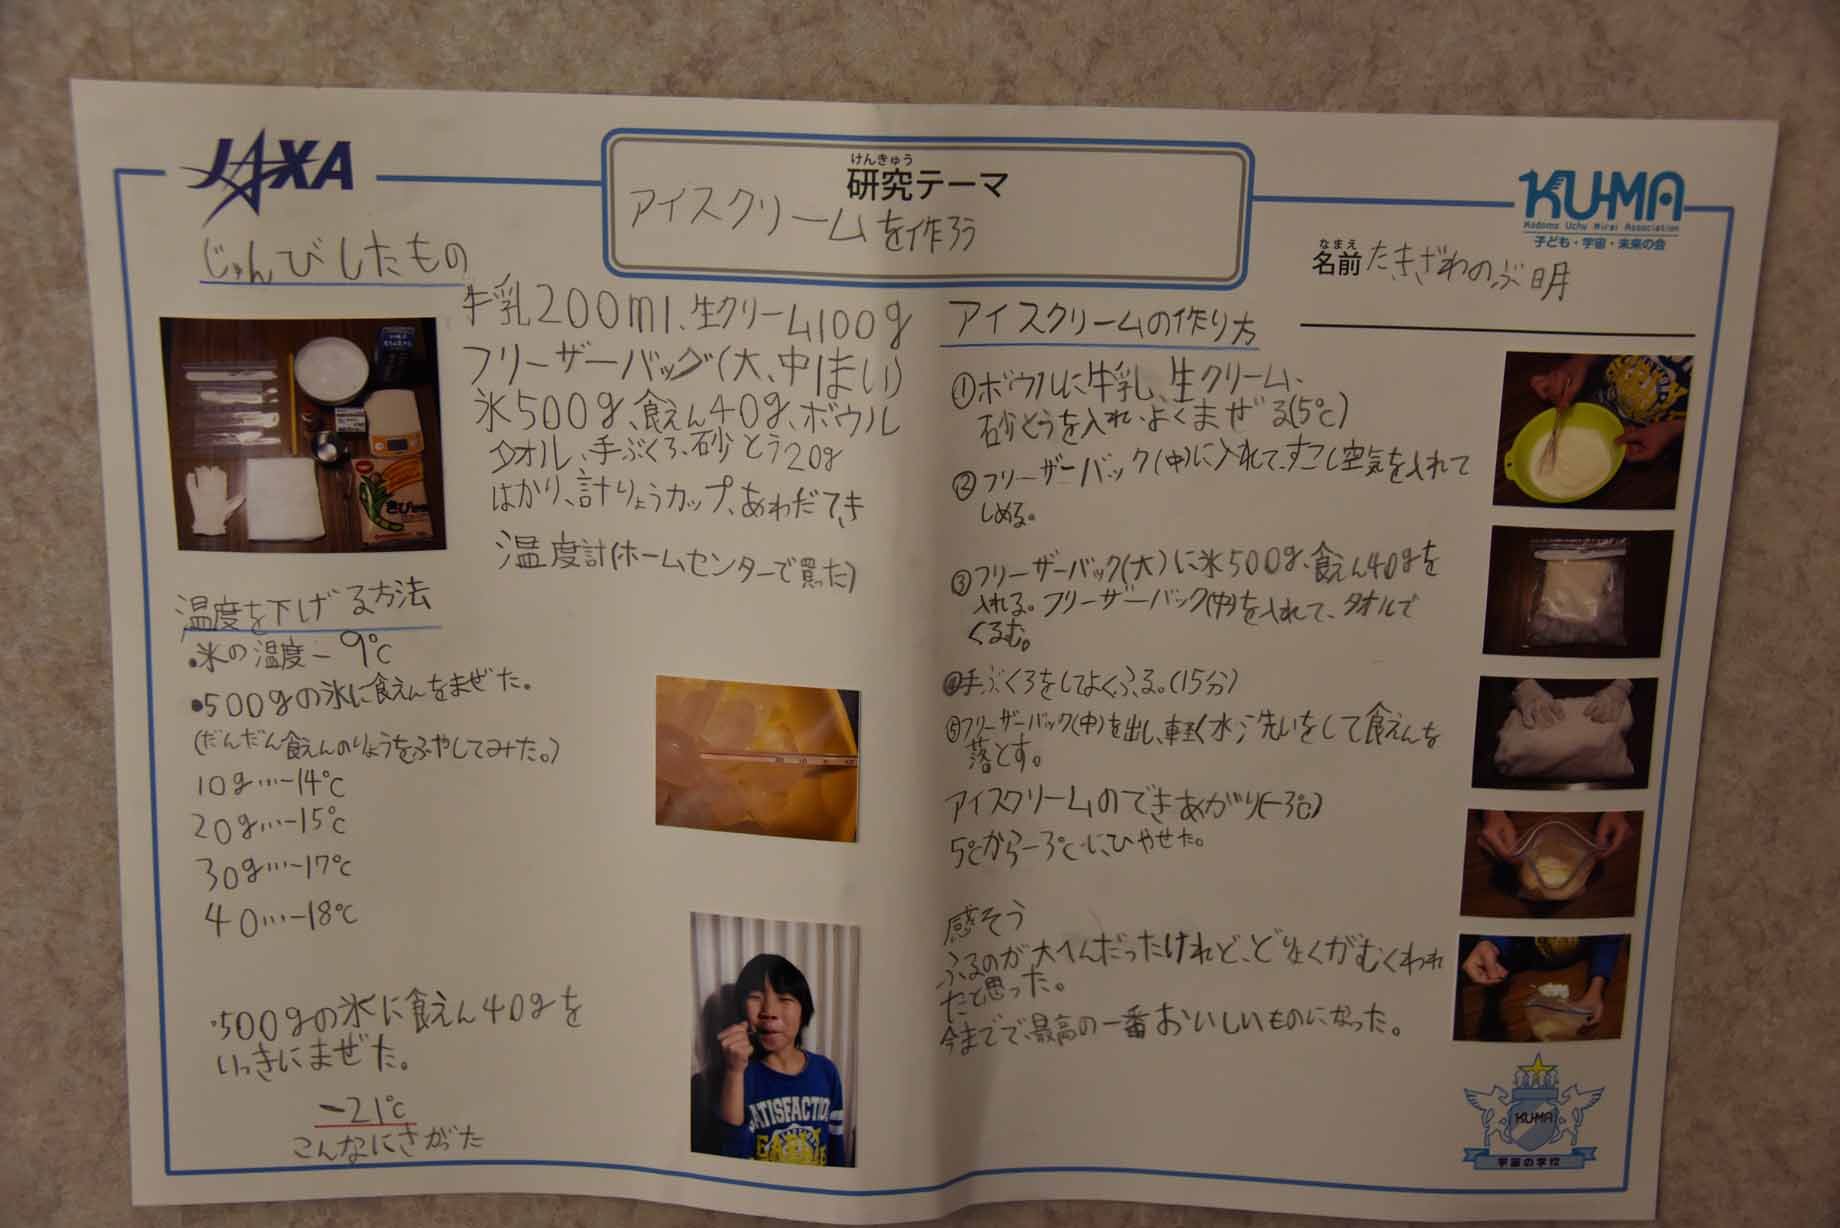 JAXA
けんきゅう
研究テーマ
アイスクリームを作ろう
KU-MA
Kodomo Uchu Mirai Association
子ども・宇宙・未来の会
なまえ
名前 たきざわのぶ明
じゅんびしたもの
牛乳200ml、生クリーム100g
フリーザーバッグ(大、中1まい)
氷500g、食えん40g、ボウル
タオル、手ぶくろ、砂とう20g
はかり、計りょうカップ、あわだてき
温度計(ホームセンターで買った)
温度を下げる方法
・氷の温度-9℃
・500gの氷に食えんをまぜた。
(だんだん食えんのりょうをふやしてみた。)
10g…-14℃
20g…-15℃
30g…-17℃
40…-18℃
・500gの氷に食えん40gを
いっきにまぜた。
-21℃
こんなにさがった
アイスクリームの作り方
①ボウルに牛乳、生クリーム、
砂とうを入れ、よくまぜる(5℃)
②フリーザーバック(中)に入れて、すこし空気を入れて
しめる。
③フリーザーバック(大)に氷500g、食えん40gを
入れる。フリーザーバック(中)を入れて、タオルで
くるむ。
④手ぶくろをしてよくふる。(15分)
⑤フリーザーバック(中)を出し、軽く水洗いをして食えんを
落とす。
アイスクリームのできあがり(-3℃)
5℃から-3℃にひやせた。
感そう
ふるのが大へんだったけれど、どりょくがむくわれ
たと思った。
今までで、最高の一番おいしいものになった。
SATISFACTION
KU-MA
宇宙の学校